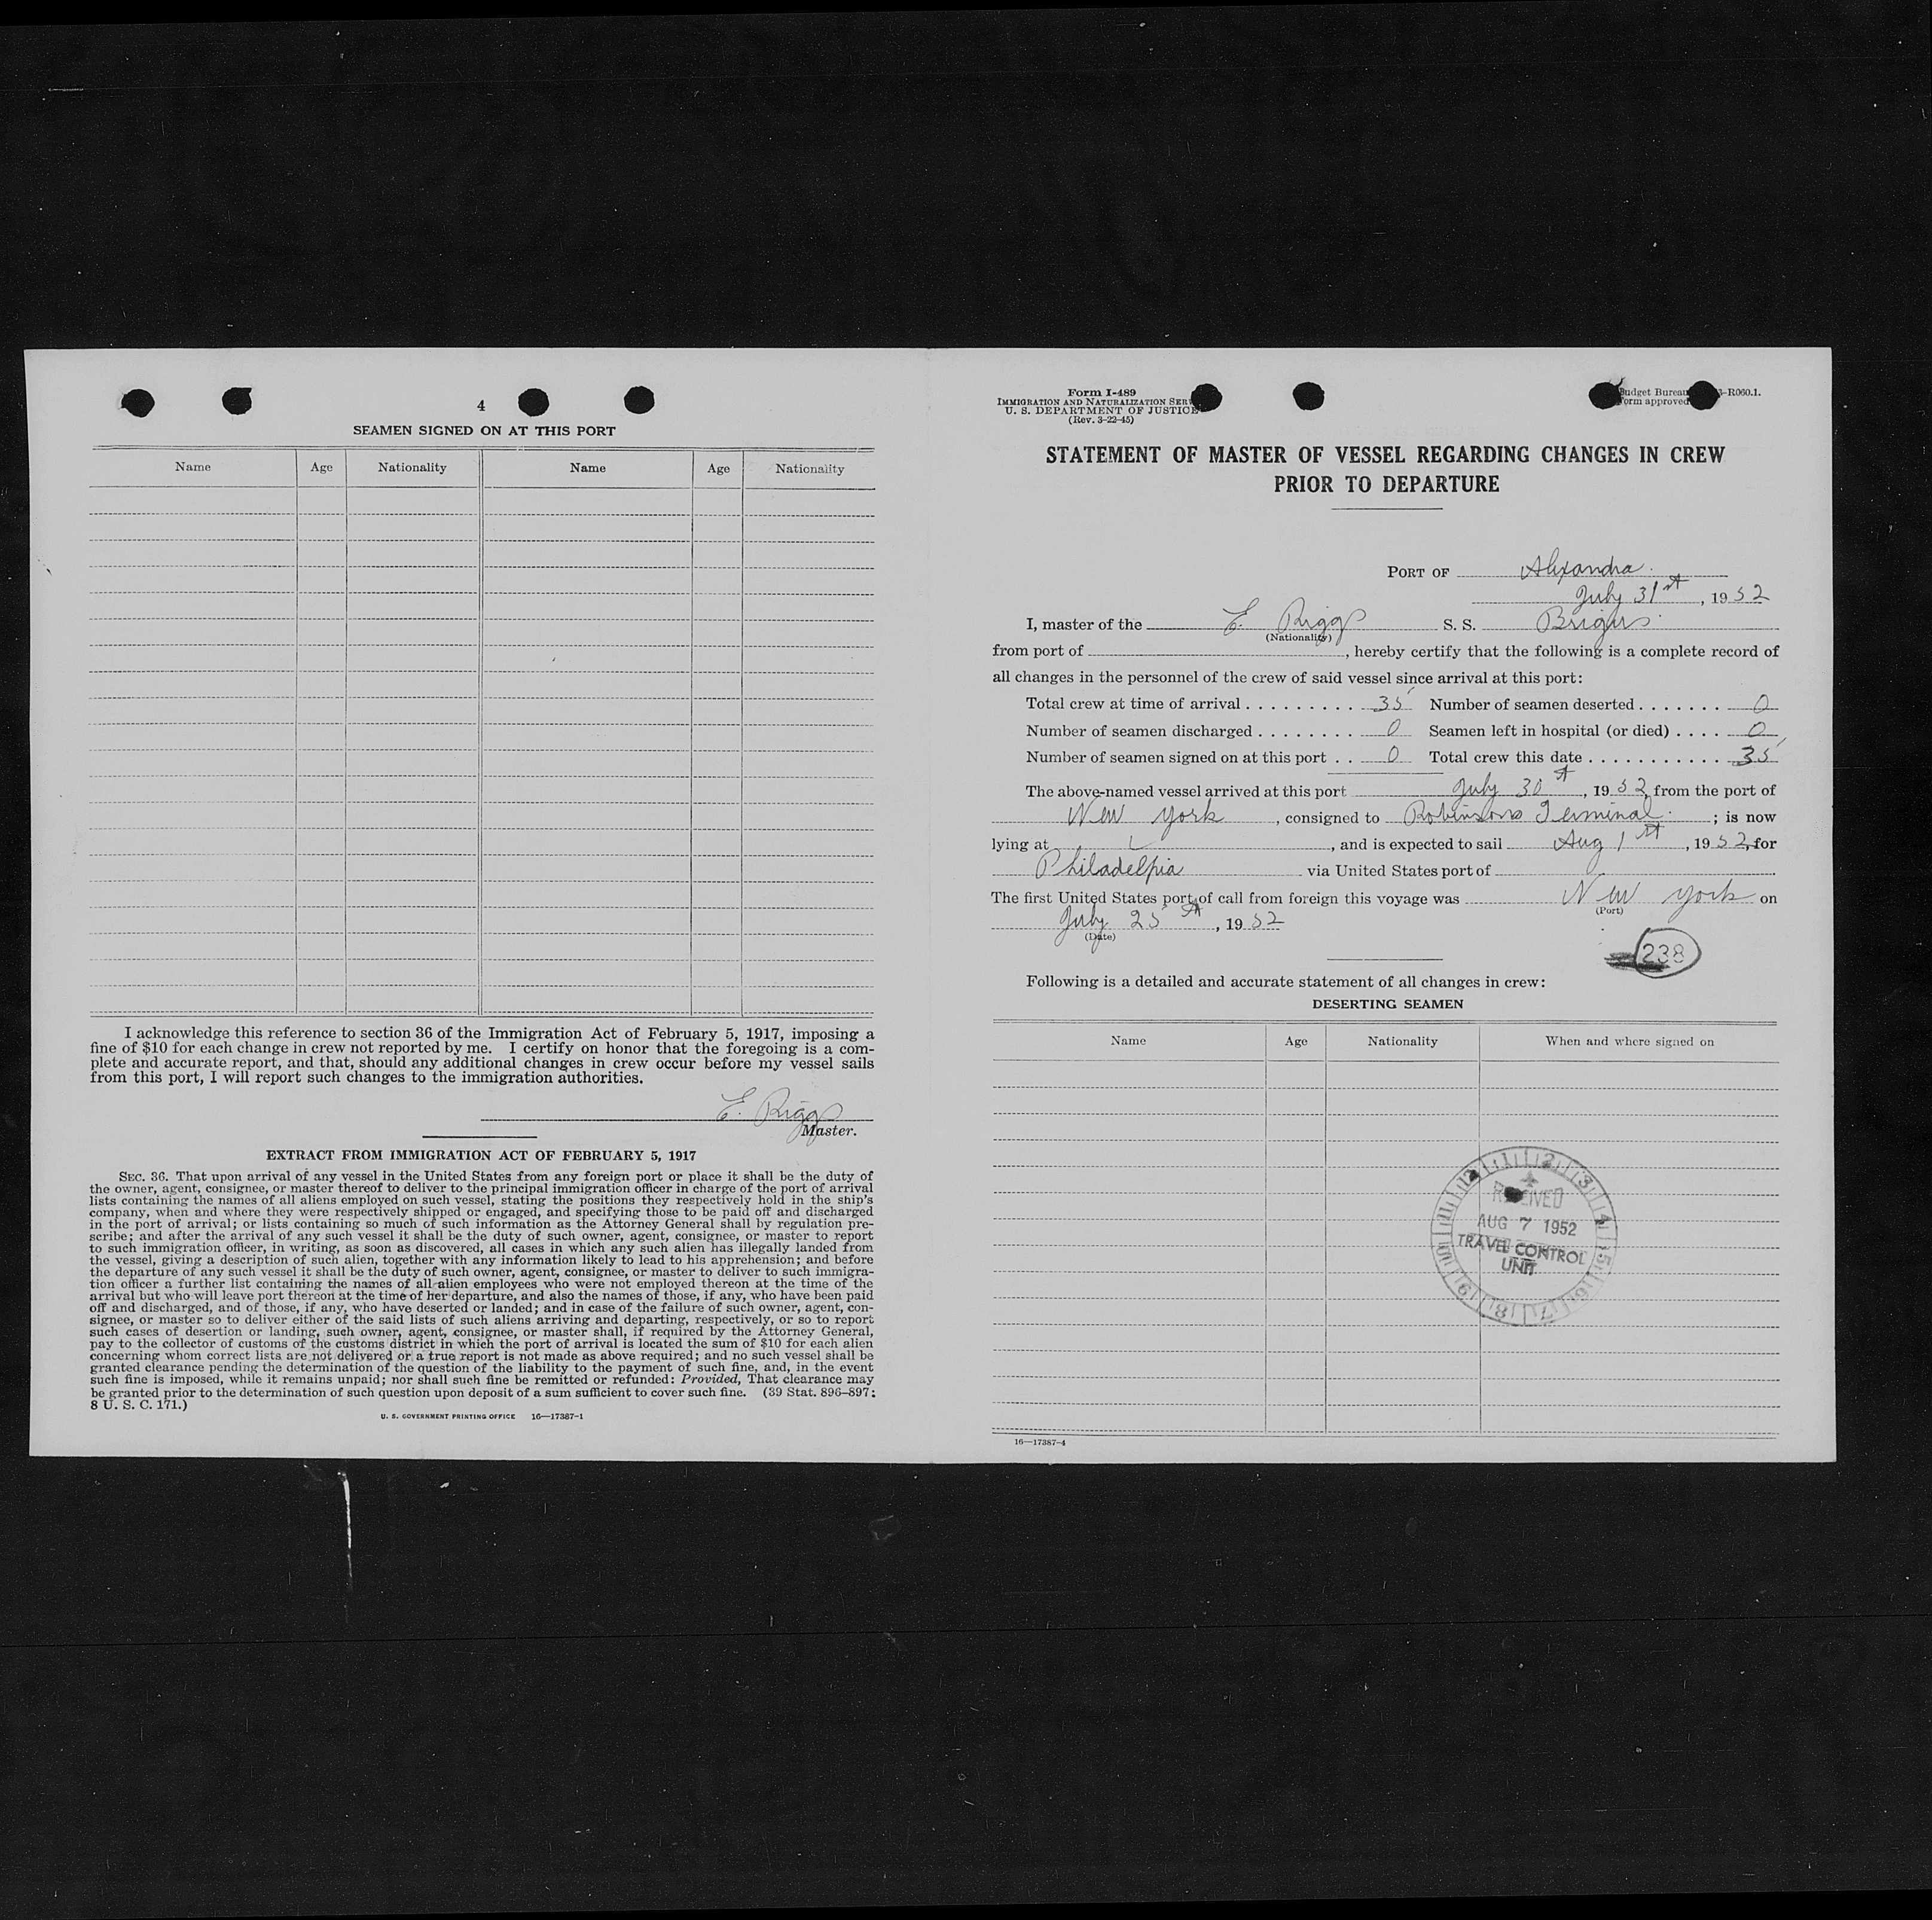 4
SEAMEN SIGNED ON AT THIS PORT
Name Age Nationality Name Age Nationality
I acknowledge this reference to section 36 of the Immigration Act of February 5, 1917, imposing a
fine of $10 for each change in crew not reported by me. I certify on honor that the foregoing is a com-
plete and accurate report, and that, should any additional changes in crew occur before my vessel sails
from this port, I will report such changes to the immigration authorities.
E. Riggs
Master.
EXTRACT FROM IMMIGRATION ACT OF FEBRUARY 5, 1917
SEC. 36. That upon arrival of any vessel in the United States from any foreign port or place it shall be the duty of
the owner, agent, consignee, or master thereof to deliver to the principal immigration officer in charge of the port of arrival
lists containing the names of all aliens employed on such vessel, stating the positions they respectively hold in the ship's
company, when and where they were respectively shipped or engaged, and specifying those to be paid off and discharged
in the port of arrival; or lists containing so much of such information as the Attorney General shall by regulation pre-
scribe; and after the arrival of any such vessel it shall be the duty of such owner, agent, consignee, or master to report
to such immigration officer, in writing, as soon as discovered, all cases in which any such alien has illegally landed from
the vessel, giving a description of such alien, together with any information likely to lead to his apprehension; and before
the departure of any such vessel it shall be the duty of such owner, agent, consignee, or master to deliver to such immigra-
tion officer a further list containing the names of all alien employees who were not employed thereon at the time of the
arrival but who will leave port thereon at the time of her departure, and also the names of those, if any, who have been paid
off and discharged, and of those, if any, who have deserted or landed; and in case of the failure of such owner, agent, con-
signee, or master so to deliver either of the said lists of such aliens arriving and departing, respectively, or so to report
such cases of desertion or landing, such owner, agent, consignee, or master shall, if required by the Attorney General,
pay to the collector of customs of the customs district in which the port of arrival is located the sum of $10 for each alien
concerning whom correct lists are not delivered or a true report is not made as above required; and no such vessel shall be
granted clearance pending the determination of the question of the liability to the payment of such fine, and, in the event
such fine is imposed, while it remains unpaid; nor shall such fine be remitted or refunded: Provided, That clearance may
be granted prior to the determination of such question upon deposit of a sum sufficient to cover such fine. (39 Stat. 896–897;
8 U. S. C. 171.)
U. S. GOVERNMENT PRINTING OFFICE 16—17387-1
Form I-489
IMMIGRATION AND NATURALIZATION SER
U. S. DEPARTMENT OF JUSTICE
(Rev. 3-22-45)
Budget Bureau -R060.1.
Form approved
STATEMENT OF MASTER OF VESSEL REGARDING CHANGES IN CREW
PRIOR TO DEPARTURE
PORT OF Alexandra.
July 31st, 1952
I, master of the E. Riggs S. S. Brigus
(Nationality)
from port of , hereby certify that the following is a complete record of
all changes in the personnel of the crew of said vessel since arrival at this port:
Total crew at time of arrival 35 Number of seamen deserted 0
Number of seamen discharged 0 Seamen left in hospital (or died) 0
Number of seamen signed on at this port 0 Total crew this date 35
The above-named vessel arrived at this port July 30st, 1952, from the port of
New York, consigned to Robinsons Terminal. ; is now
lying at , and is expected to sail Aug 1st, 1952, for
Philadelpia via United States port of
The first United States port of call from foreign this voyage was New York on
(Port)
July 25st, 1952
(Date)
238
Following is a detailed and accurate statement of all changes in crew:
DESERTING SEAMEN
Name Age Nationality When and where signed on
12 1 2 3 4 5 6 7 8 9 10 11
RECEIVED
AUG 7 1952
TRAVEL CONTROL
UNIT
16—17387-4